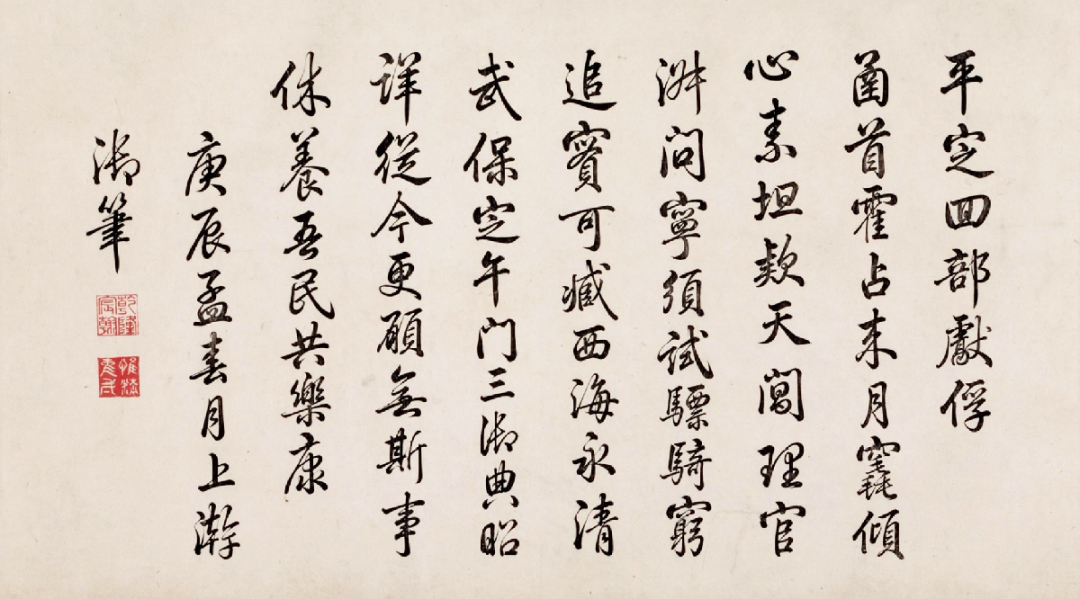 平定囬部獻俘
函首霍占来月竁傾
心素坦款天閶理官
淑問寧須試驃騎窮
追實可臧西海永清
武保定午门三御典昭
詳從今更願無斯事
休養吾民共樂康
庚辰孟春月上澣
御筆
乾隆宸翰